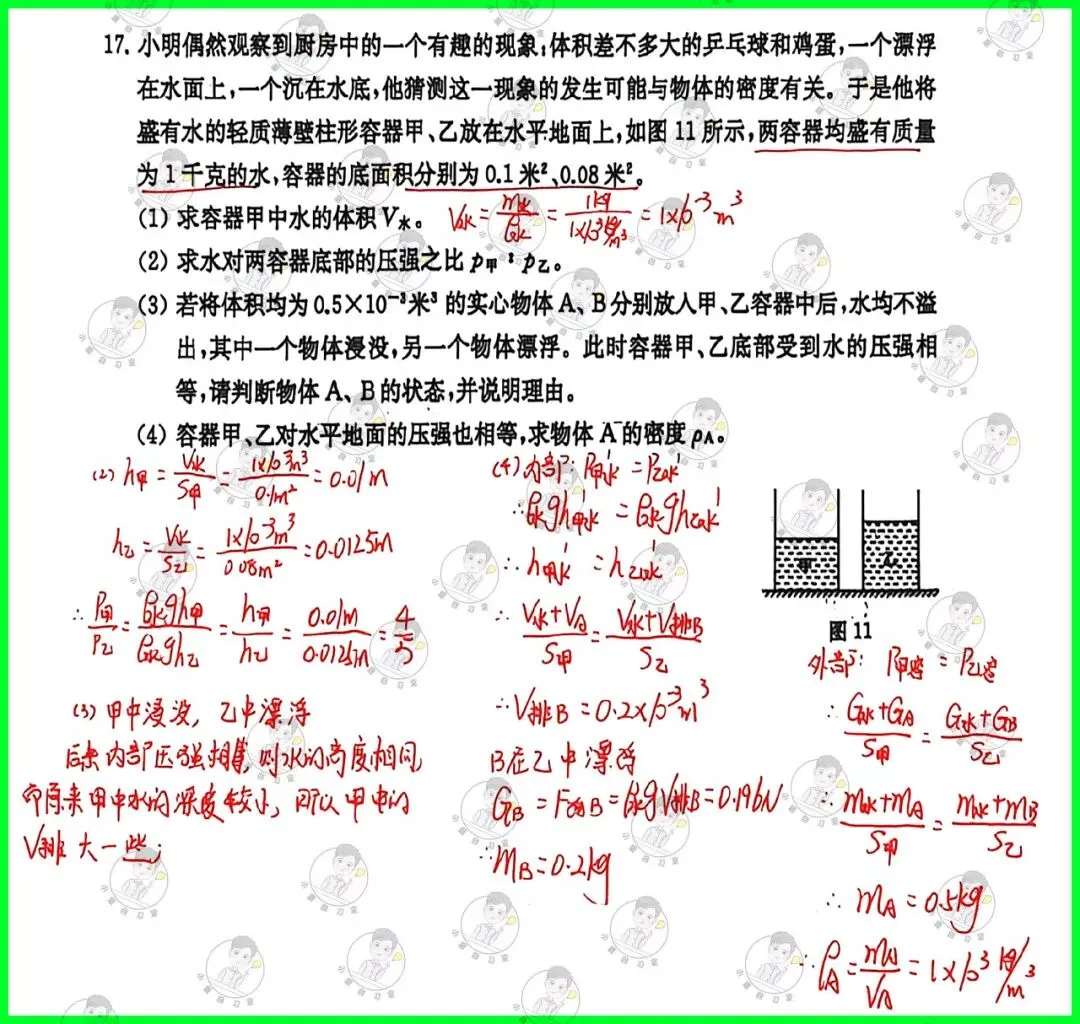 17. 小明偶然观察到厨房中的一个有趣的现象:体积差不多大的乒乓球和鸡蛋,一个漂浮
在水面上,一个沉在水底,他猜测这一现象的发生可能与物体的密度有关。于是他将
盛有水的轻质薄壁柱形容器甲、乙放在水平地面上,如图 11 所示,两容器均盛有质量
为 1 千克的水,容器的底面积分别为 0.1 米²、0.08 米²。
(1) 求容器甲中水的体积 V水。 V水 = m水/ρ水 = 1kg/1×10³kg/m³ = 1×10⁻³m³
(2) 求水对两容器底部的压强之比 p甲∶p乙。
(3) 若将体积均为 0.5×10⁻³米³ 的实心物体 A、B 分别放入甲、乙容器中后,水均不溢
出,其中一个物体浸没,另一个物体漂浮。此时容器甲、乙底部受到水的压强相
等,请判断物体 A、B 的状态,并说明理由。
(4) 容器甲、乙对水平地面的压强也相等,求物体 A 的密度 ρA。
(2) h甲 = V水/S甲 = 1×10⁻³m³/0.1m² = 0.01m
h乙 = V水/S乙 = 1×10⁻³m³/0.08m² = 0.0125m
∴ P甲/P乙 = ρ水gh甲/ρ水gh乙 = h甲/h乙 = 0.01m/0.0125m = 4/5
(3) 甲中浸没, 乙中漂浮
后来内部压强相等, 则水的高度相同,
而原来甲中水的深度较小, 所以甲中的
V排大一些;
(4) 内部: P甲水' = P乙水'
∴ ρ水gh甲水' = ρ水gh乙水'
∴ h甲水' = h乙水'
∴ V水+VA/S甲 = V水+V排B/S乙
∴ V排B = 0.2×10⁻³m³
B在乙中漂浮
GB = F浮B = ρ水gV排B = 0.196N
∴ mB = 0.2kg
甲
乙
图 11
外部: P甲容 = P乙容
∴ G水+GA/S甲 = G水+GB/S乙
∴ m水+mA/S甲 = m水+mB/S乙
∴ mA = 0.5kg
∴ ρA = mA/VA = 1×10³kg/m³